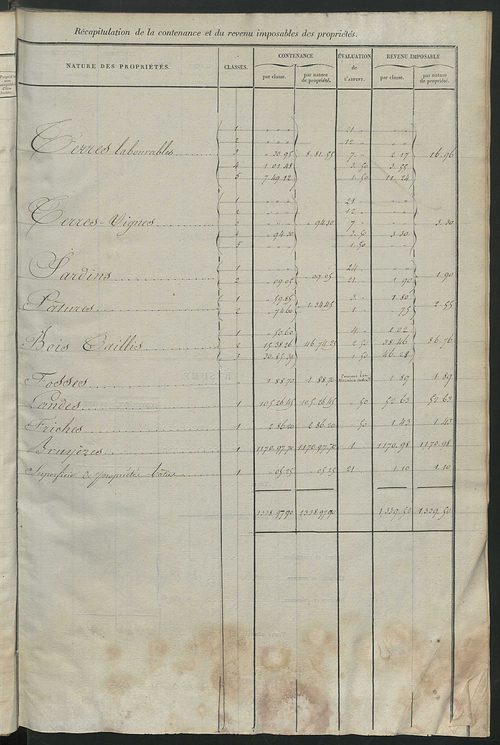 Récapitulation de la contenance et du revenu imposables des propriétés.
NATURE DES PROPRIÉTÉS. CLASSES. CONTENANCE ÉVALUATION de L'ARPENT. REVENU IMPOSABLE
par classe. par nature de propriété. par classe. par nature de propriété.
1 21
2 12
Terres labourables 3 30.95 8.81.55 7 2 17 16.96
4 1.01.48 3.50 3 55
5 7.49.12 1.50 11 24
1 21
2 12
Terres-Vignes 3 94.30 7 3.30
4 94.30 3.50 3 30
5 1.50
Jardins 1 09.05 24 1.90
2 09.05 21 1 90
Pâtures 1 59.85 1.34.45 3 1.80 2.55
2 74.60 1 75
1 50.60 4 2.02
Bois Taillis 2 15.38.26 46.74.25 2.50 38.46 86.76
3 30.85.39 1.50 46.28
Fosses 1 1 88.70 1 88.70 1 89 1.89
Landes 1 105.26.45 105.26.45 50 52.63 52.63
Friches 1 2 86.20 2 86.20 50 1.43 1.43
Bruyères 1 1170.97.70 1170.97.70 1 1170.98 1170.98
Superficie de propriétés bâties 1 05.25 05.25 21 1.10 1.10
1338.97.90 1338.97.90 1,339.50 1,339.50